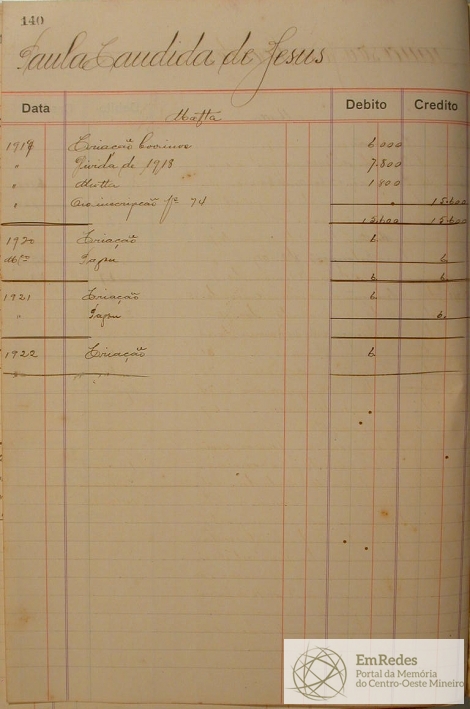 140
Paula Candida de Jesus
Data Debito Credito
Matta
1919 Criação bovinos 6.000
" Divida de 1918 7.800
" Multa 1.800
" inscripção fª 74 15.600
15.600 15.600
1920 Criação 6.
Pagou 6.
6. 6.
1921 Criação 6.
" Pagou 6.
1922 Criação 6
EmRedes
Portal da Memória
do Centro-Oeste Mineiro